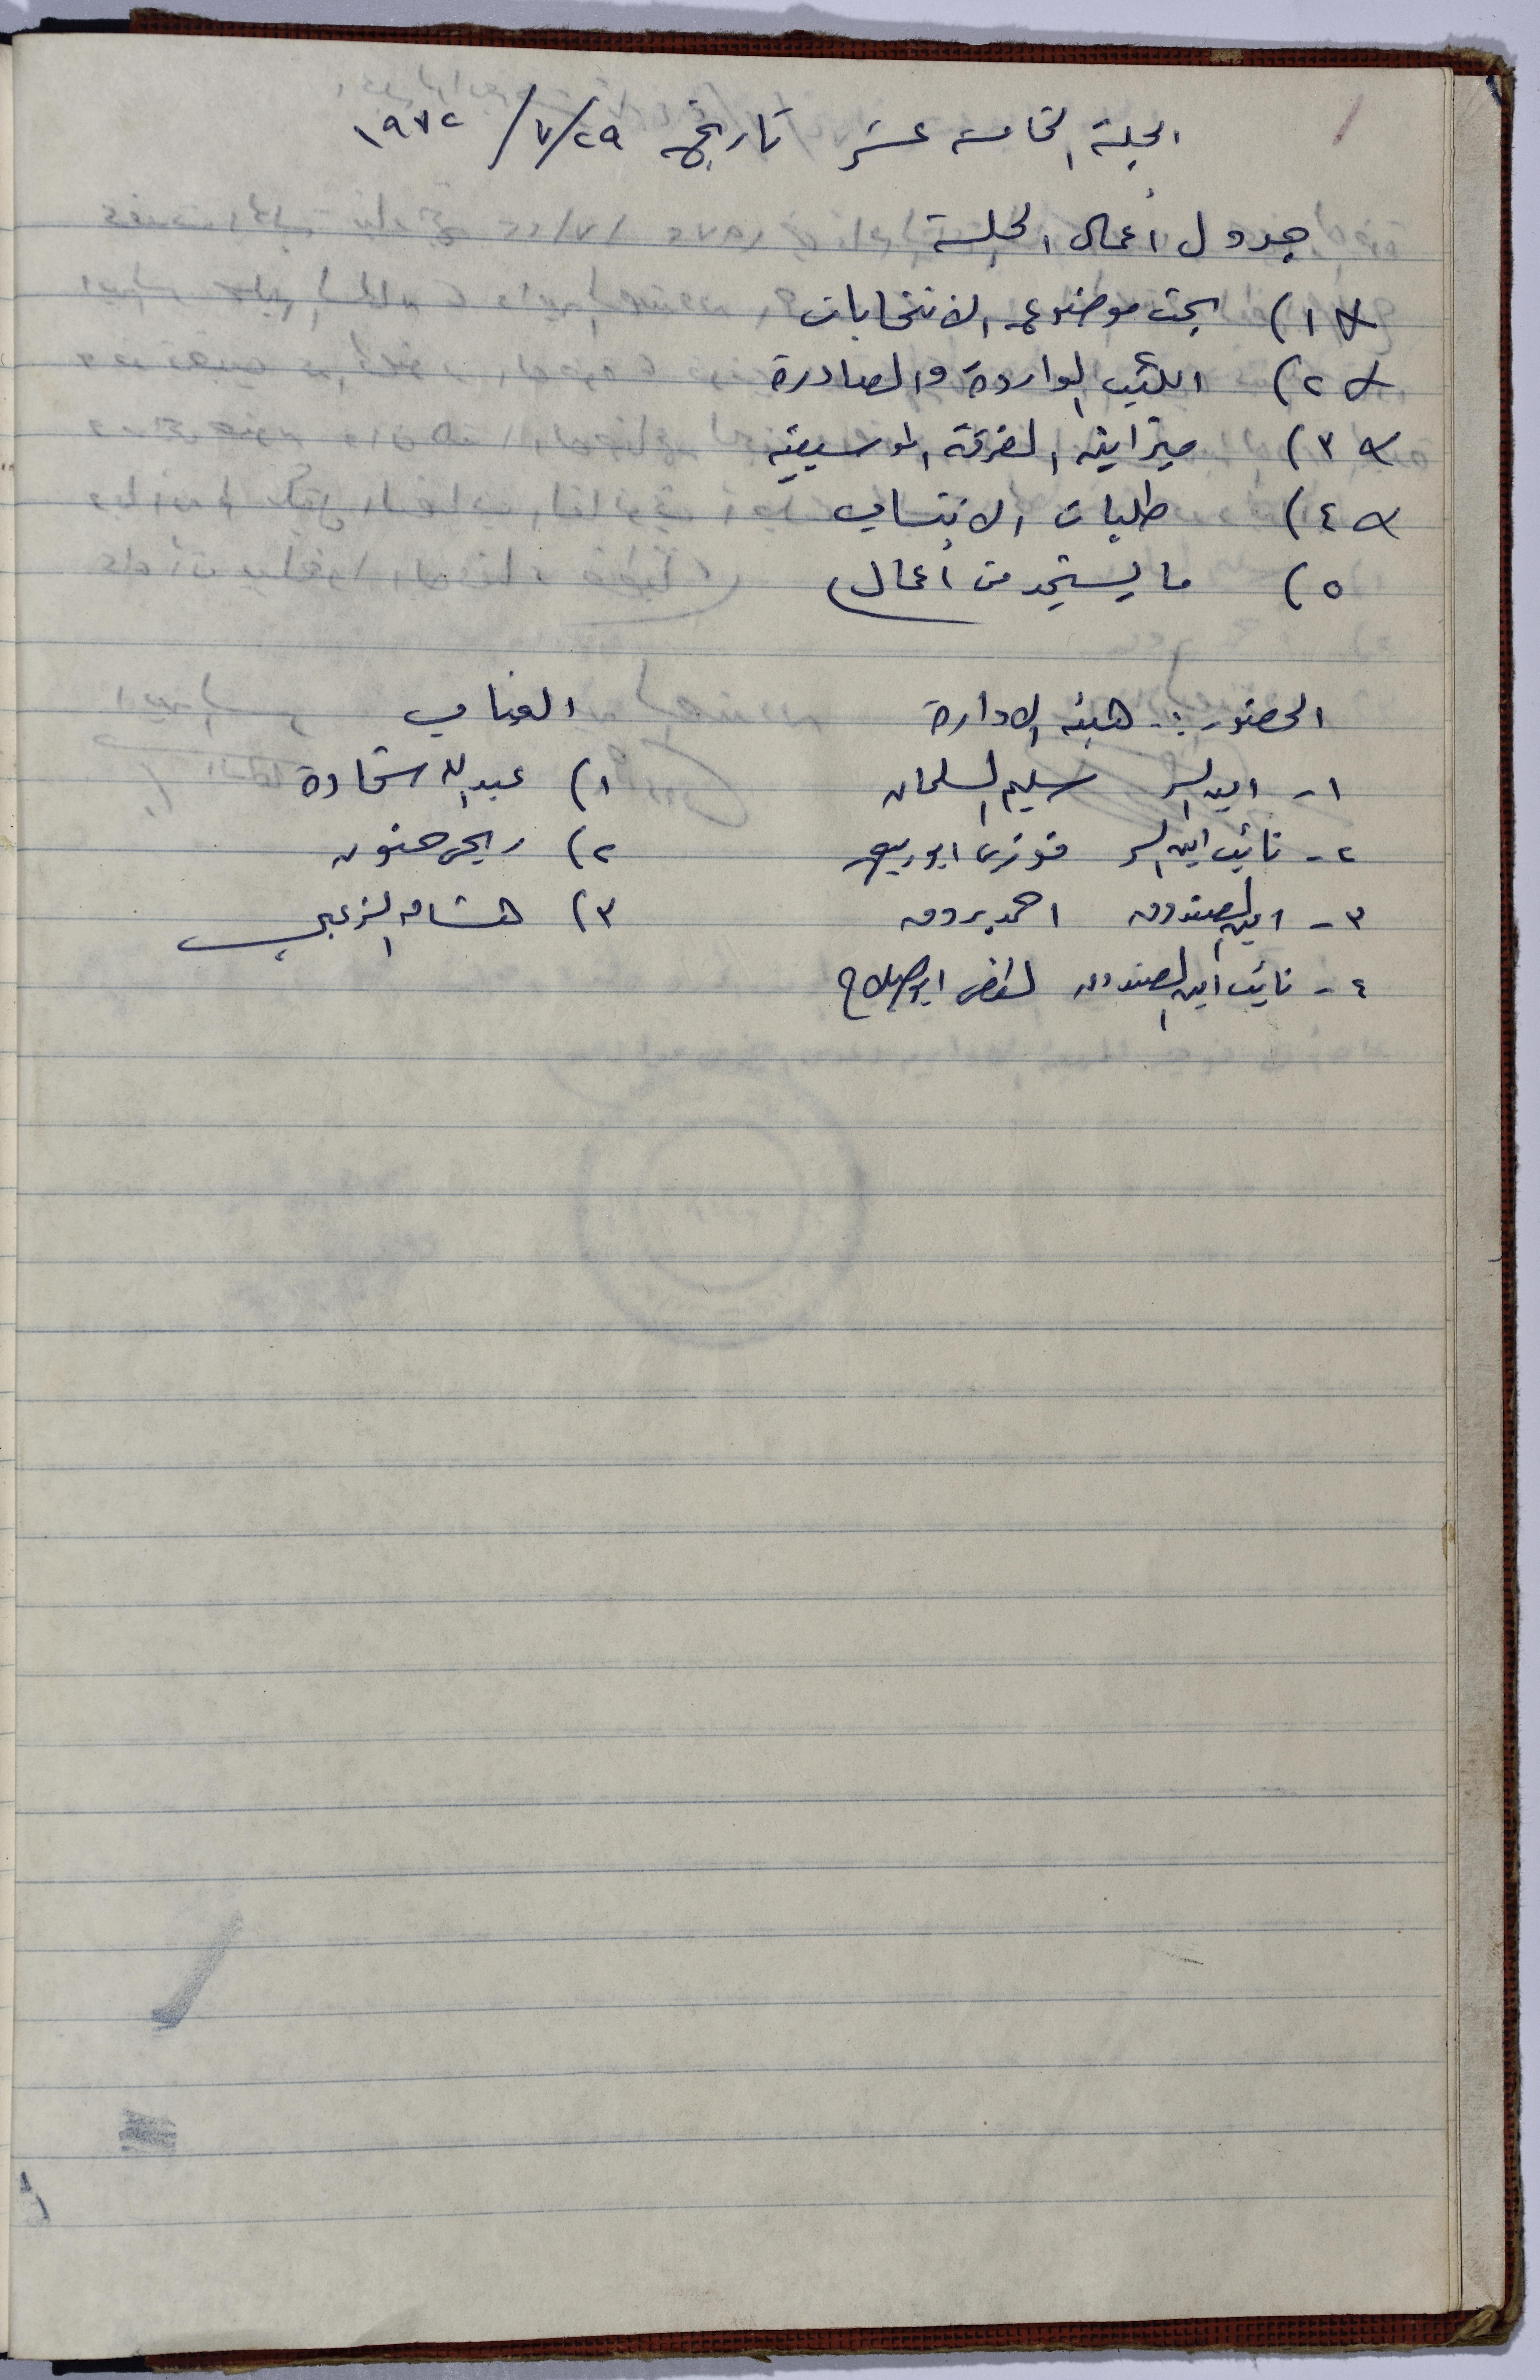 الجلسة الخامسة عشر تاريخ ٢٩/٧/١٩٧٢
جدول أعمال الجلسة
١) بحث موضوع الانتخابات
٢) الكتب الواردة والصادرة
٣) ميزانية الفرقة الموسيقية
٤) طلبات الانتساب
٥) ما يستجد من أعمال
الحضور :. هيئة الادارة الغياب
١- امين السر سليم السلمان ١) عبدالله شحادة
٢- نائب امين السر فوزي ابو ربيع ٢) ربحي حنون
٣- امين الصندوق احمد بردق ٣) هشام الزعبي
٤- نائب امين الصندوق ابو صلاح